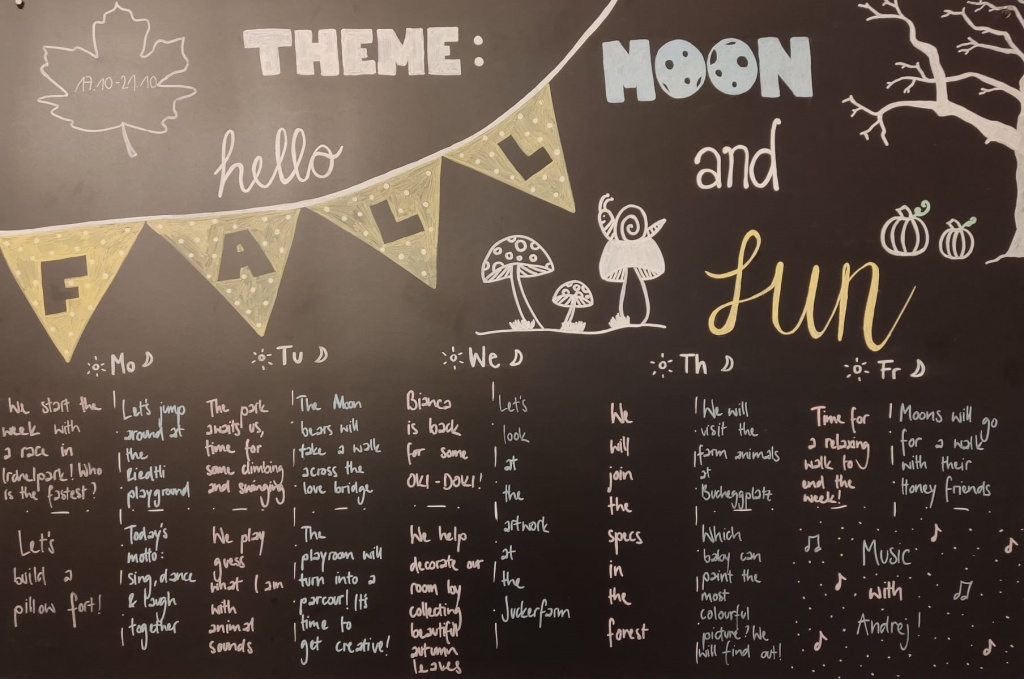 17.10-21.10
THEME:
MOON
and
fun
hello
FALL
Mo
We start the
week with
a race in
Irchelpark! Who
is the fastest?
Let's
build a
pillow fort!
Let's jump
around at
the
Riedtli
playground
Today's
motto:
sing, dance
& laugh
together
Tu
The park
awaits us,
time for
some climbing
and swinging
We play
guess
what I am
with
animal
sounds
The Moon
bears will
take a walk
across the
love bridge
The
playroom will
turn into a
parcour! It's
time to
get creative!
We
Bianca
is back
for some
OKI-DOKI!
We help
decorate our
room by
collecting
beautiful
autumn
leaves
Let's
look
at
the
artwork
at
the
Juckerfarm
Th
We
will
join
the
specs
in
the
forest
We will
visit the
farm animals
at
Bucheggplatz
Which
baby can
paint the
most
colourful
picture? We
will find out!
Fr
Time for
a relaxing
walk to
end the
week!
Moons will go
for a walk
with their
Honey friends
Music
with
Andrej!